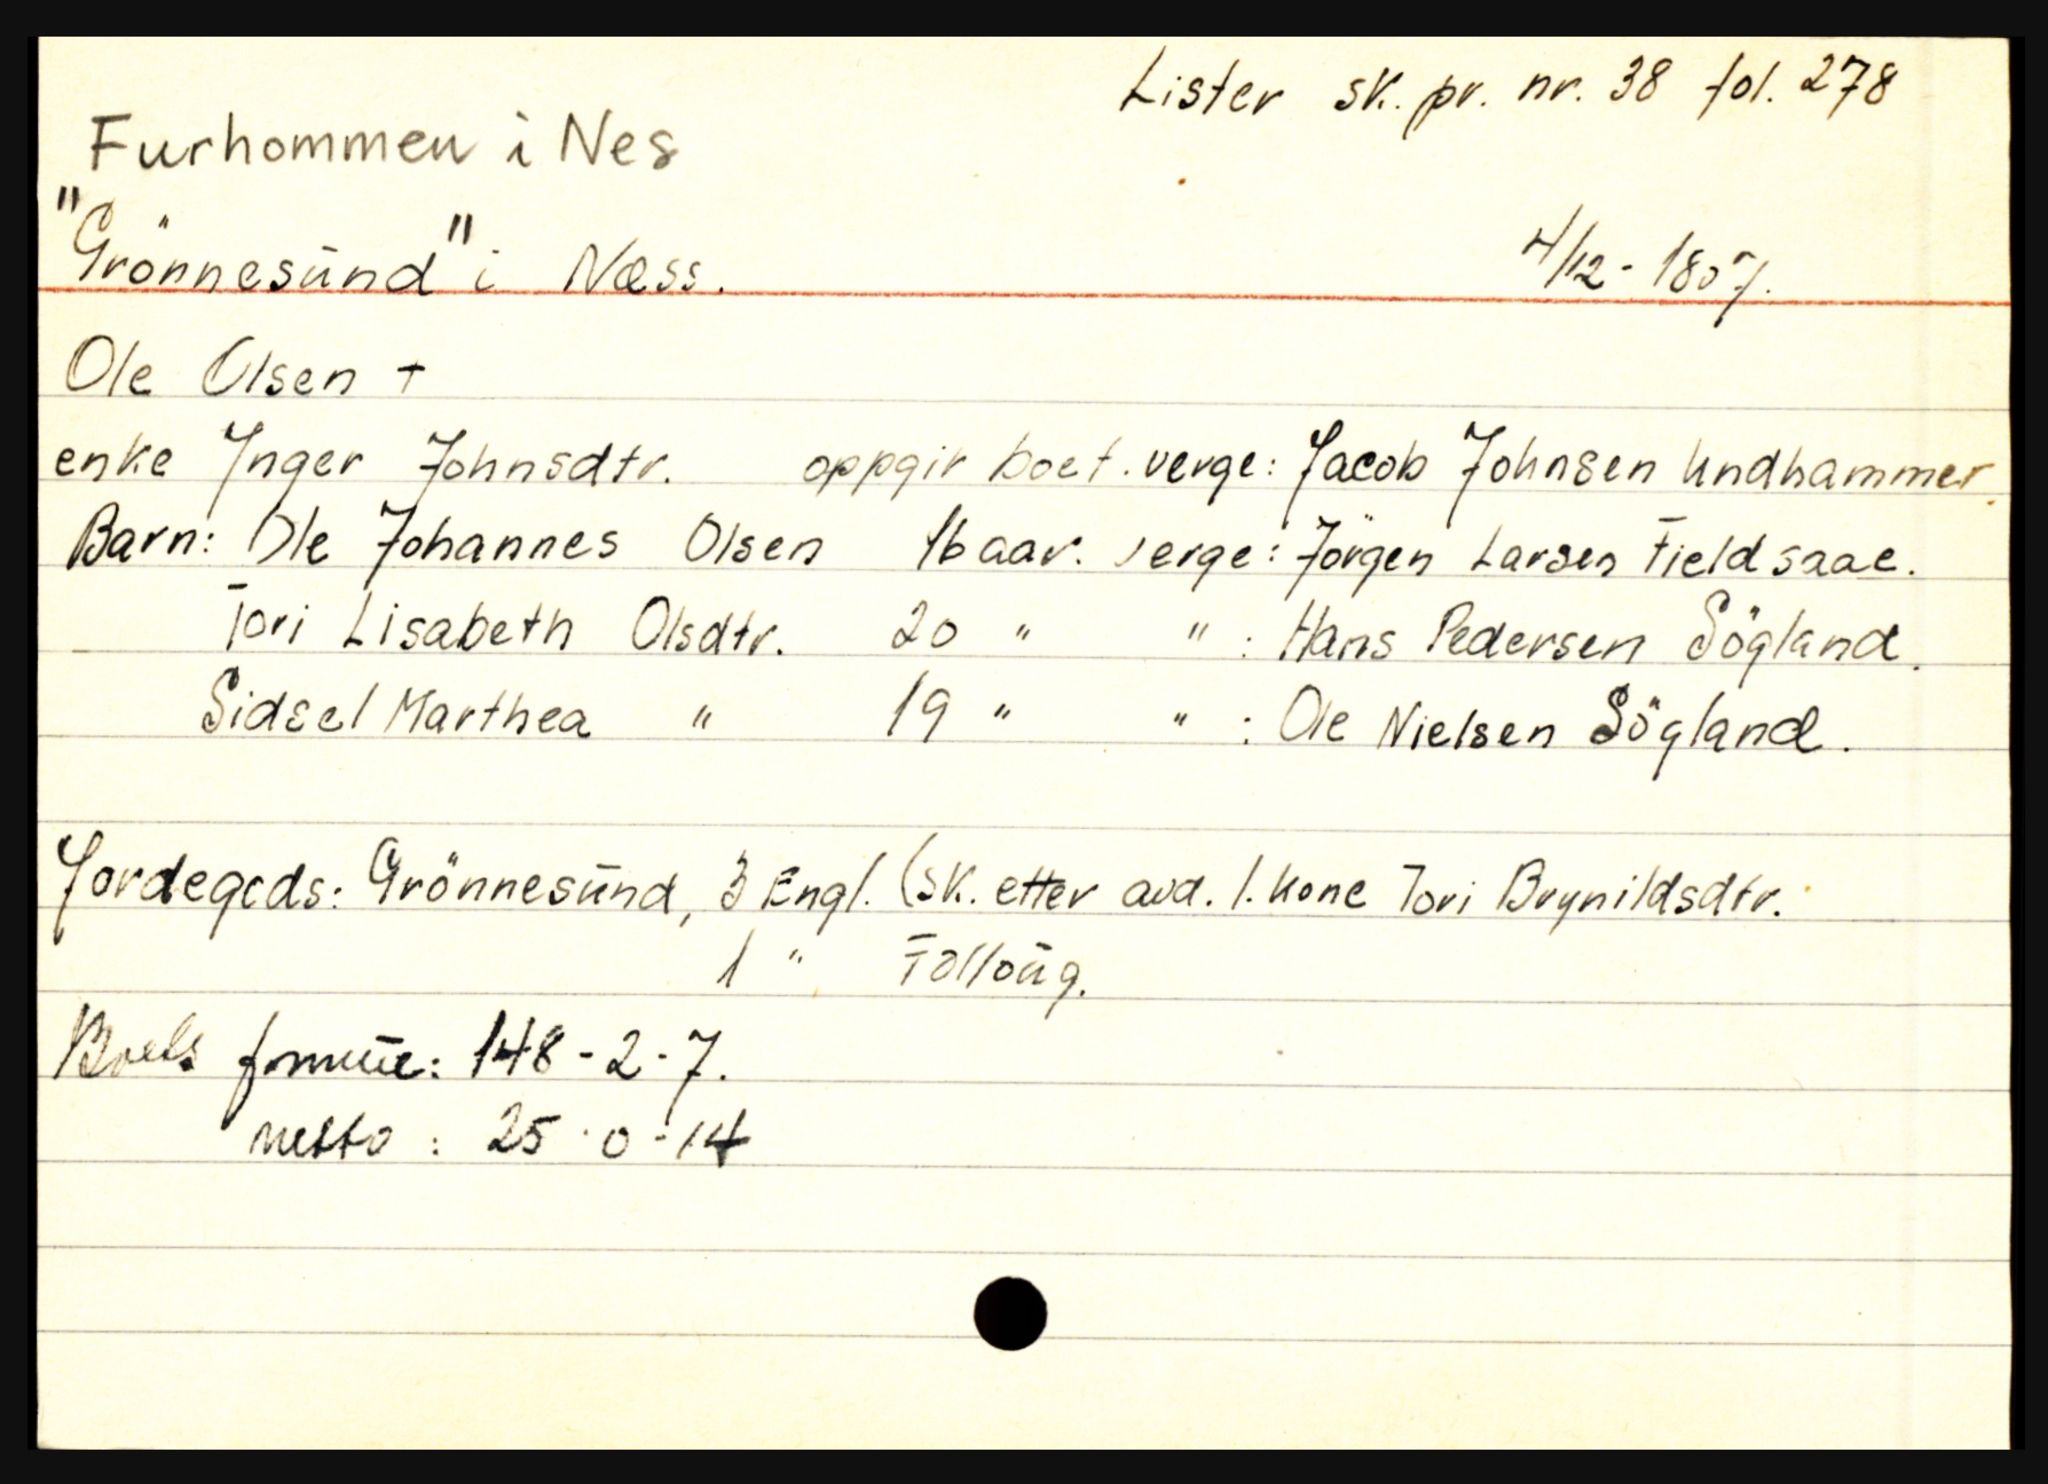 Lister sk. pr. nr. 38 fol. 278
Furhommen i Nes
"Grönnesūnd" i Næss.
4/12 - 1807.
Ole Olsen +
enke Inger Johnsdtr. oppgir boet. verge: Jacob Johnsen Undhammer.
Barn: Ole Johannes Olsen 16 aar. verge: Jörgen Larsen Fieldsaae.
Tori Lisabeth Olsdtr. 20 " " : Hans Pedersen Sögland.
Sidsel Marthea " 19 " " : Ole Nielsen Sögland.
Jordegods: Grönnesūnd, 3 Engl. (sk. etter avd. 1. kone Tori Brynildsdtr.
1 " Folloūg.
Boets formūe: 148 - 2 - 7.
netto : 25 - 0 - 14